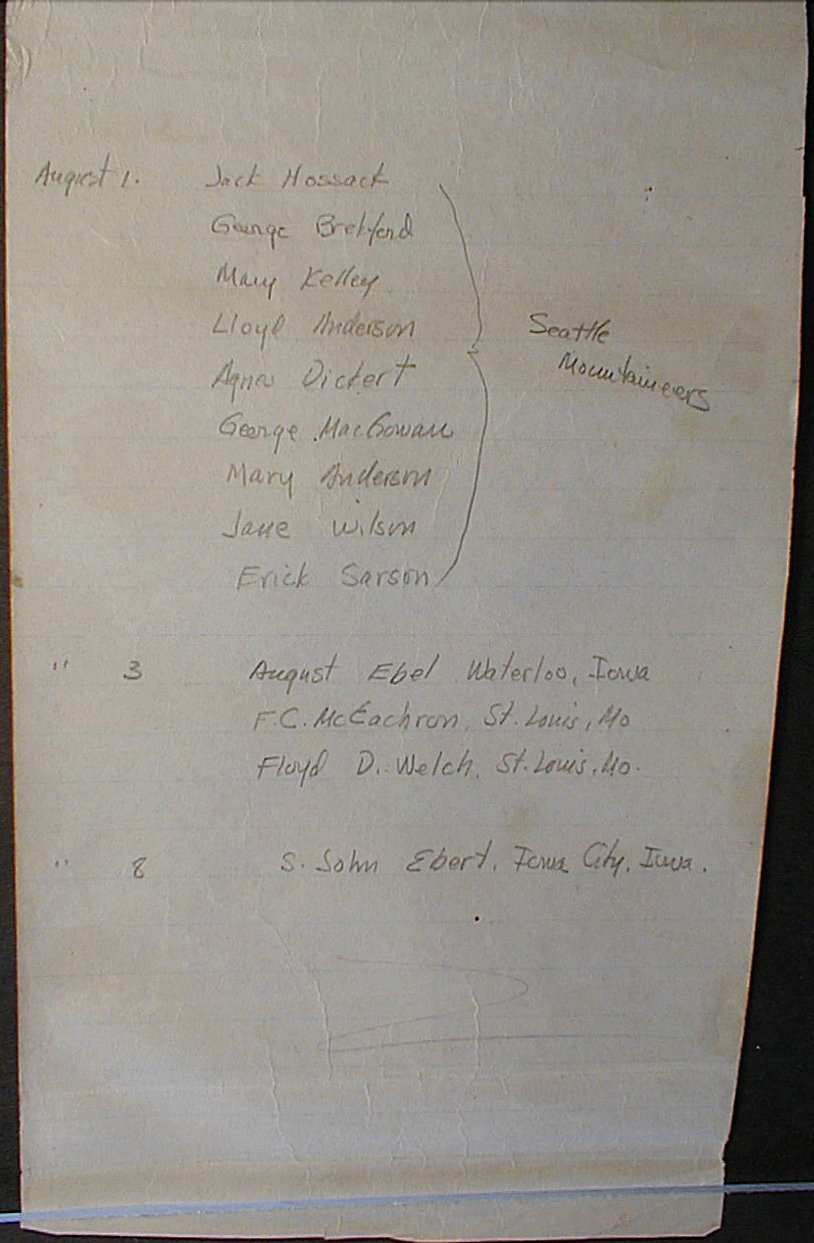 August 1. Jack Hossack
George
Mary Kelley
Lloyd Anderson
Agnes Dickert
George MacGowan
Mary Anderson
Jane Wilson
Erick Sarson
Seattle
Mountaineers
" 3 August Ebel Waterloo, Iowa
F.C. McEachron, St. Louis, Mo
Floyd D. Welch, St. Louis, Mo.
" 8 S. John Ebert, Iowa City, Iowa.